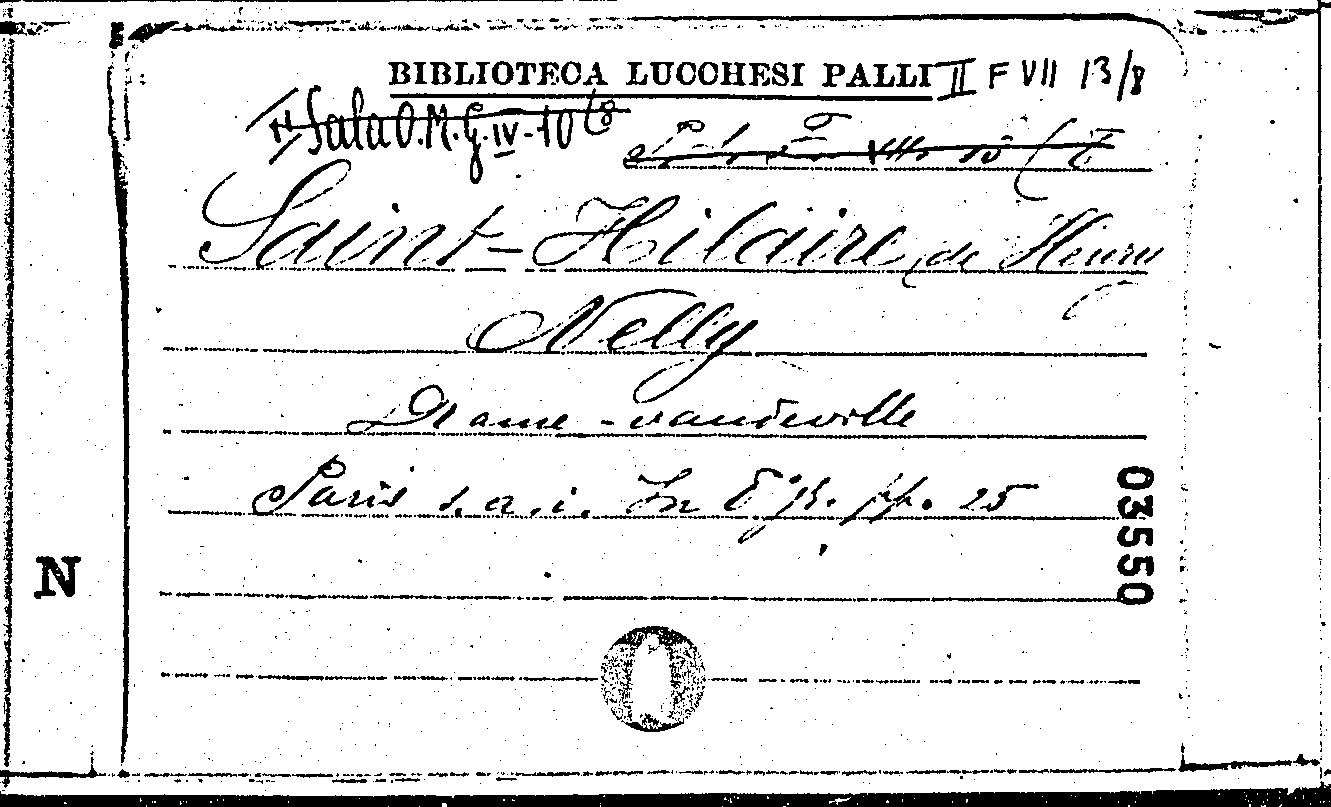 BIBLIOTECA LUCCHESI PALLI II F VII 13/8
Sala O.M.G. IV-10
VIII
Saint-Hilaire, de Henry
Nelly
Drame-vaudeville
Paris s. a. i. In 8° gr. pp. 25
03550
N